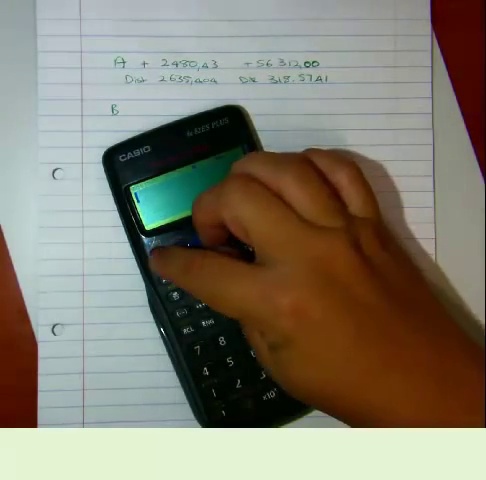 A + 2480,43 +56 312,00
Dist 2635,404 Dir 318.5741
B
CASIO
fx-82ES PLUS
RCL ENG
7 8
4 5
1 2
×10ˣ